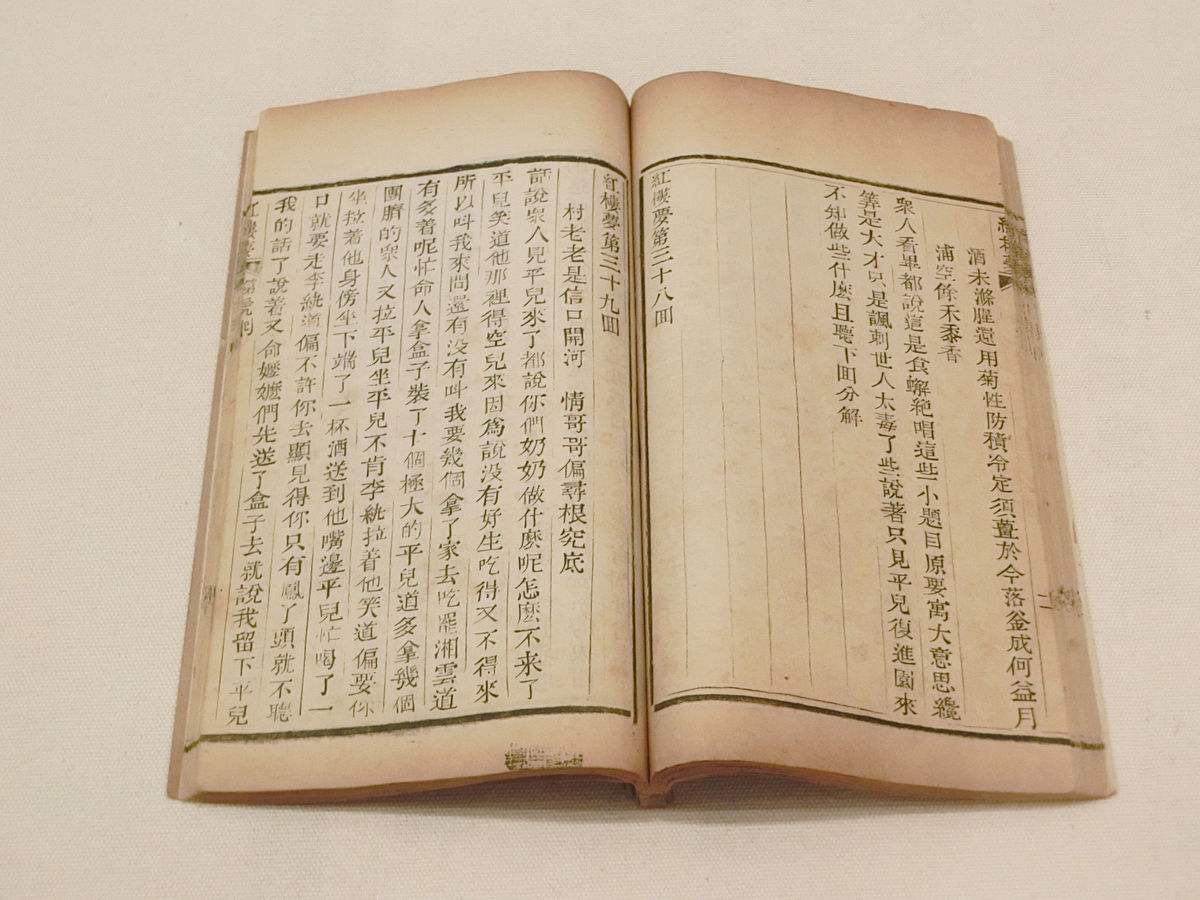 酒未滌腥還用菊性防積冷定須薑於今落釜成何益月
浦空餘禾黍香
衆人看畢都說這是食蠏絶唱這些小題目原要寓大意思纔
筭是大才只是諷刺世人太毒了些說著只見平兒復進園來
不知做些什麽且聽下囬分解
紅樓夢第三十八囬
紅樓夢第三十九囬
村老老是信口開河 情哥哥偏尋根究底
話說衆人見平兒來了都說你們奶奶做什麽呢怎麽不来了
平兒笑道他那裡得空兒來因爲說没有好生吃得又不得來
所以呌我來問還有没有呌我要幾個拿了家去吃罷湘雲道
有多着呢忙命人拿盒子装了十個極大的平兒道多拿幾個
團臍的衆人又拉平兒坐平兒不肯李紈拉着他笑道偏要你
坐拉着他身傍坐下端了一杯酒送到他嘴邊平兒忙喝了一
口就要走李紈道偏不許你去顯見得你只有鳳丫頭就不聼
我的話了說着又命嬷嬷們先送了盒子去就說我留下平兒
紅樓夢